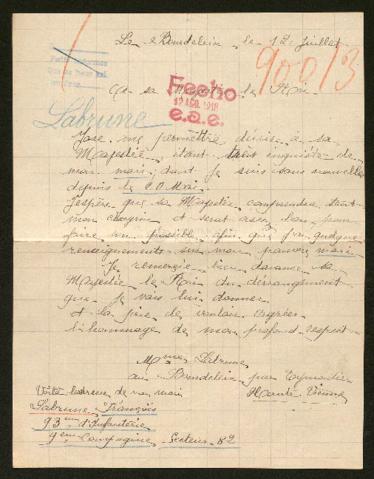 Le Bondelein, le 12 Juillet
90013
A sa Majesté le Roi
Fecho
17 AGO. 1918
e.a.e.
Labrune
Jose me permettre d'ecrire a sa
Majestée, étant tant inquiète de
mon mari, dont je suis sans nouvelles
depuis le 20 Mai.
J'espère que sa Majestée comprendra tout
mon chagrin et serat assez bon pour
faire son possible afin que j'ai quelques
renseignements sur mon pauvre mari.
Je remercie bien davance Sa
Majestée le Roi du dérangement
que je vais lui donner
et la prie de vouloir agréer
l'hommage de mon profond respect.
Mme Labrune
au Bondelein par Eymoutiers
Haute Vienne
Voila ladresse de mon mari
Labrune François
93me d'Infanterie
9eme Compagnie, Secteur 82